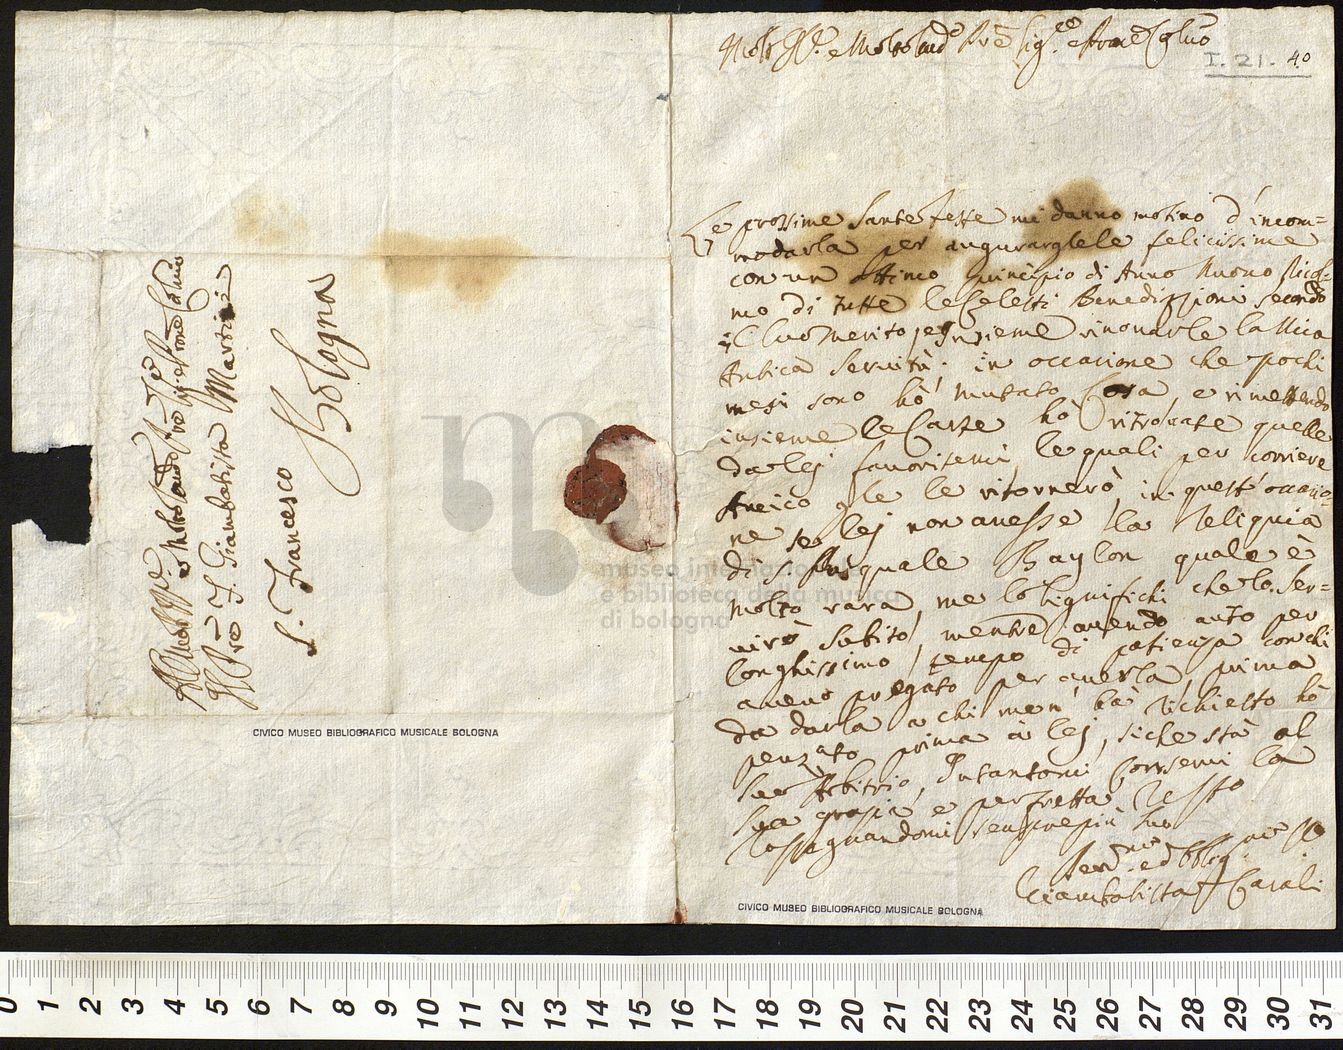 Molto Ill.re e Molto Rnd.o Pre Sig.re e Prone Col.mo
I. 21. 40
Le prossime Sante feste mi danno motivo d'incom=
modarla per augurargliele felicissime
con un ottimo principio di Anno Nuovo Ricol=
mo di tutte le Celesti Benedizzioni secondo
il Suo Merito, e insieme rinovarle la Mia
Antica Servitù: in occasione che pochi
mesi sono hò mutato Casa, e rimettendo
insieme le Carte hò ritrovate quelle
da lej favoritemi, le quali per corriere
Amico gle le ritornerò, in quest'occasio-
ne se lej non avesse la Reliquia
di S. Pasquale Baylon quale è
molto rara, me lo significhi che la ser-
virò subito, mentre avendo auto per
longhissimo tempo di patienza con chi
avevo pregato per averla, prima
da darla a chi me n'hà richiesto hò
penzato prima à lej, siche stà al
suo Arbitrio, Intantomi conservi la
sua grazia e per fretta resto
rassegnandomi sempre più suo
Serv.re ed Obblig.mo
Giambattista Casali
Al Molto Ill.re e Molto Rndo Pre Sig.re e Prone Col.mo
Il Pre F. Giambatista Martini
S. Francesco
Bologna
museo internazionale
e biblioteca della musica
di bologna
CIVICO MUSEO BIBLIOGRAFICO MUSICALE BOLOGNA
CIVICO MUSEO BIBLIOGRAFICO MUSICALE BOLOGNA
0 1 2 3 4 5 6 7 8 9 10 11 12 13 14 15 16 17 18 19 20 21 22 23 24 25 26 27 28 29 30 31